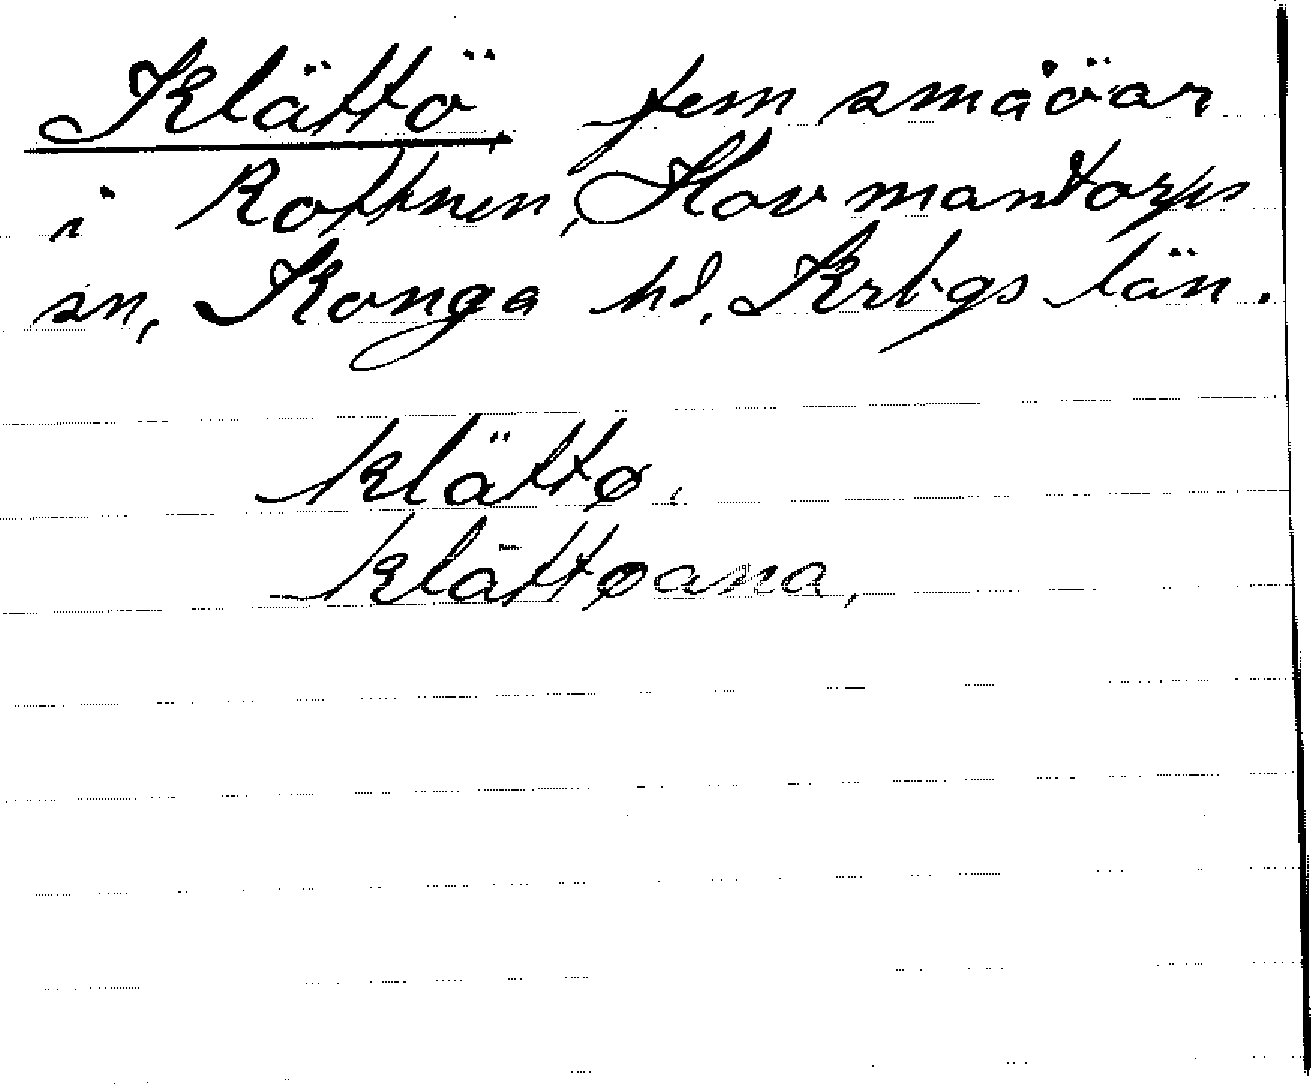 Klättö, fem småöar
i Rottnen, Hovmantorps
sn, Konga hd, Krbgs län.
klättø,
klättøana,